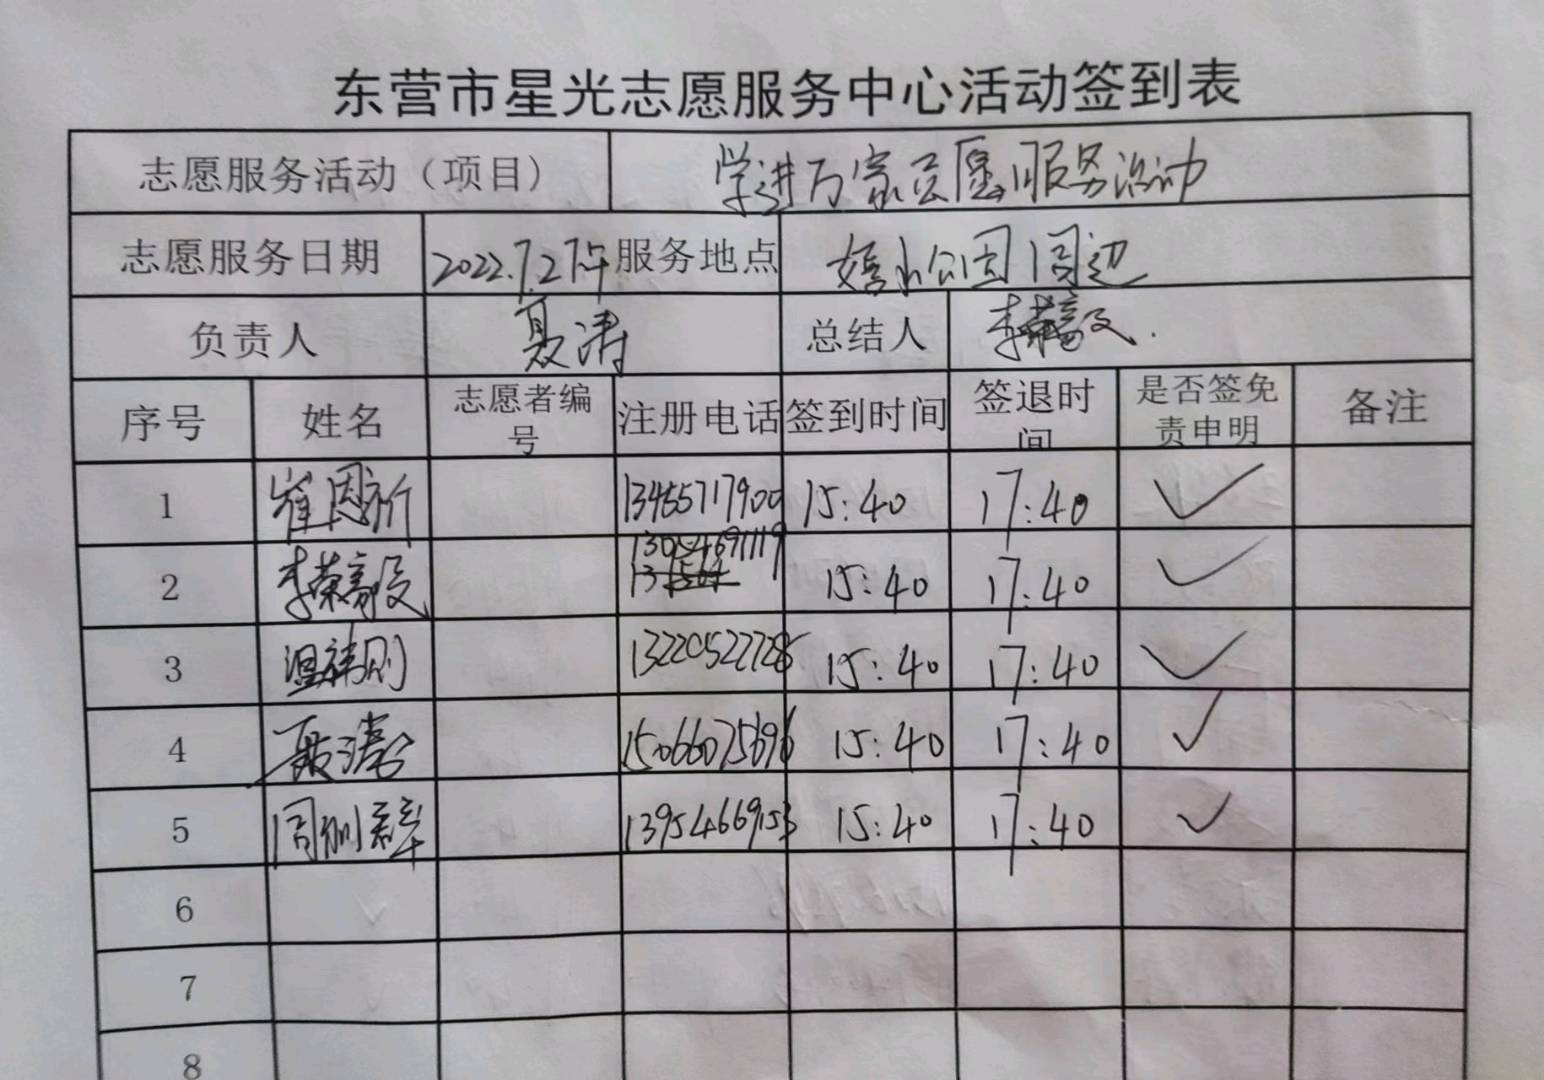 东营市星光志愿服务中心活动签到表
志愿服务活动（项目） 学进万家志愿服务活动
志愿服务日期 2022.7.2下午 服务地点 公园周边
负责人 聂涛 总结人 李荣毅
序号 姓名 志愿者编号 注册电话 签到时间 签退时间 是否签免责申明 备注
1 崔恩新 13455717900 15:40 17:40 ✓
2 李荣毅 13054691119 15:40 17:40 ✓
3 温 刚 13220522728 15:40 17:40 ✓
4 聂涛 15066075696 15:40 17:40 ✓
5 周 13954669153 15:40 17:40 ✓
6
7
8